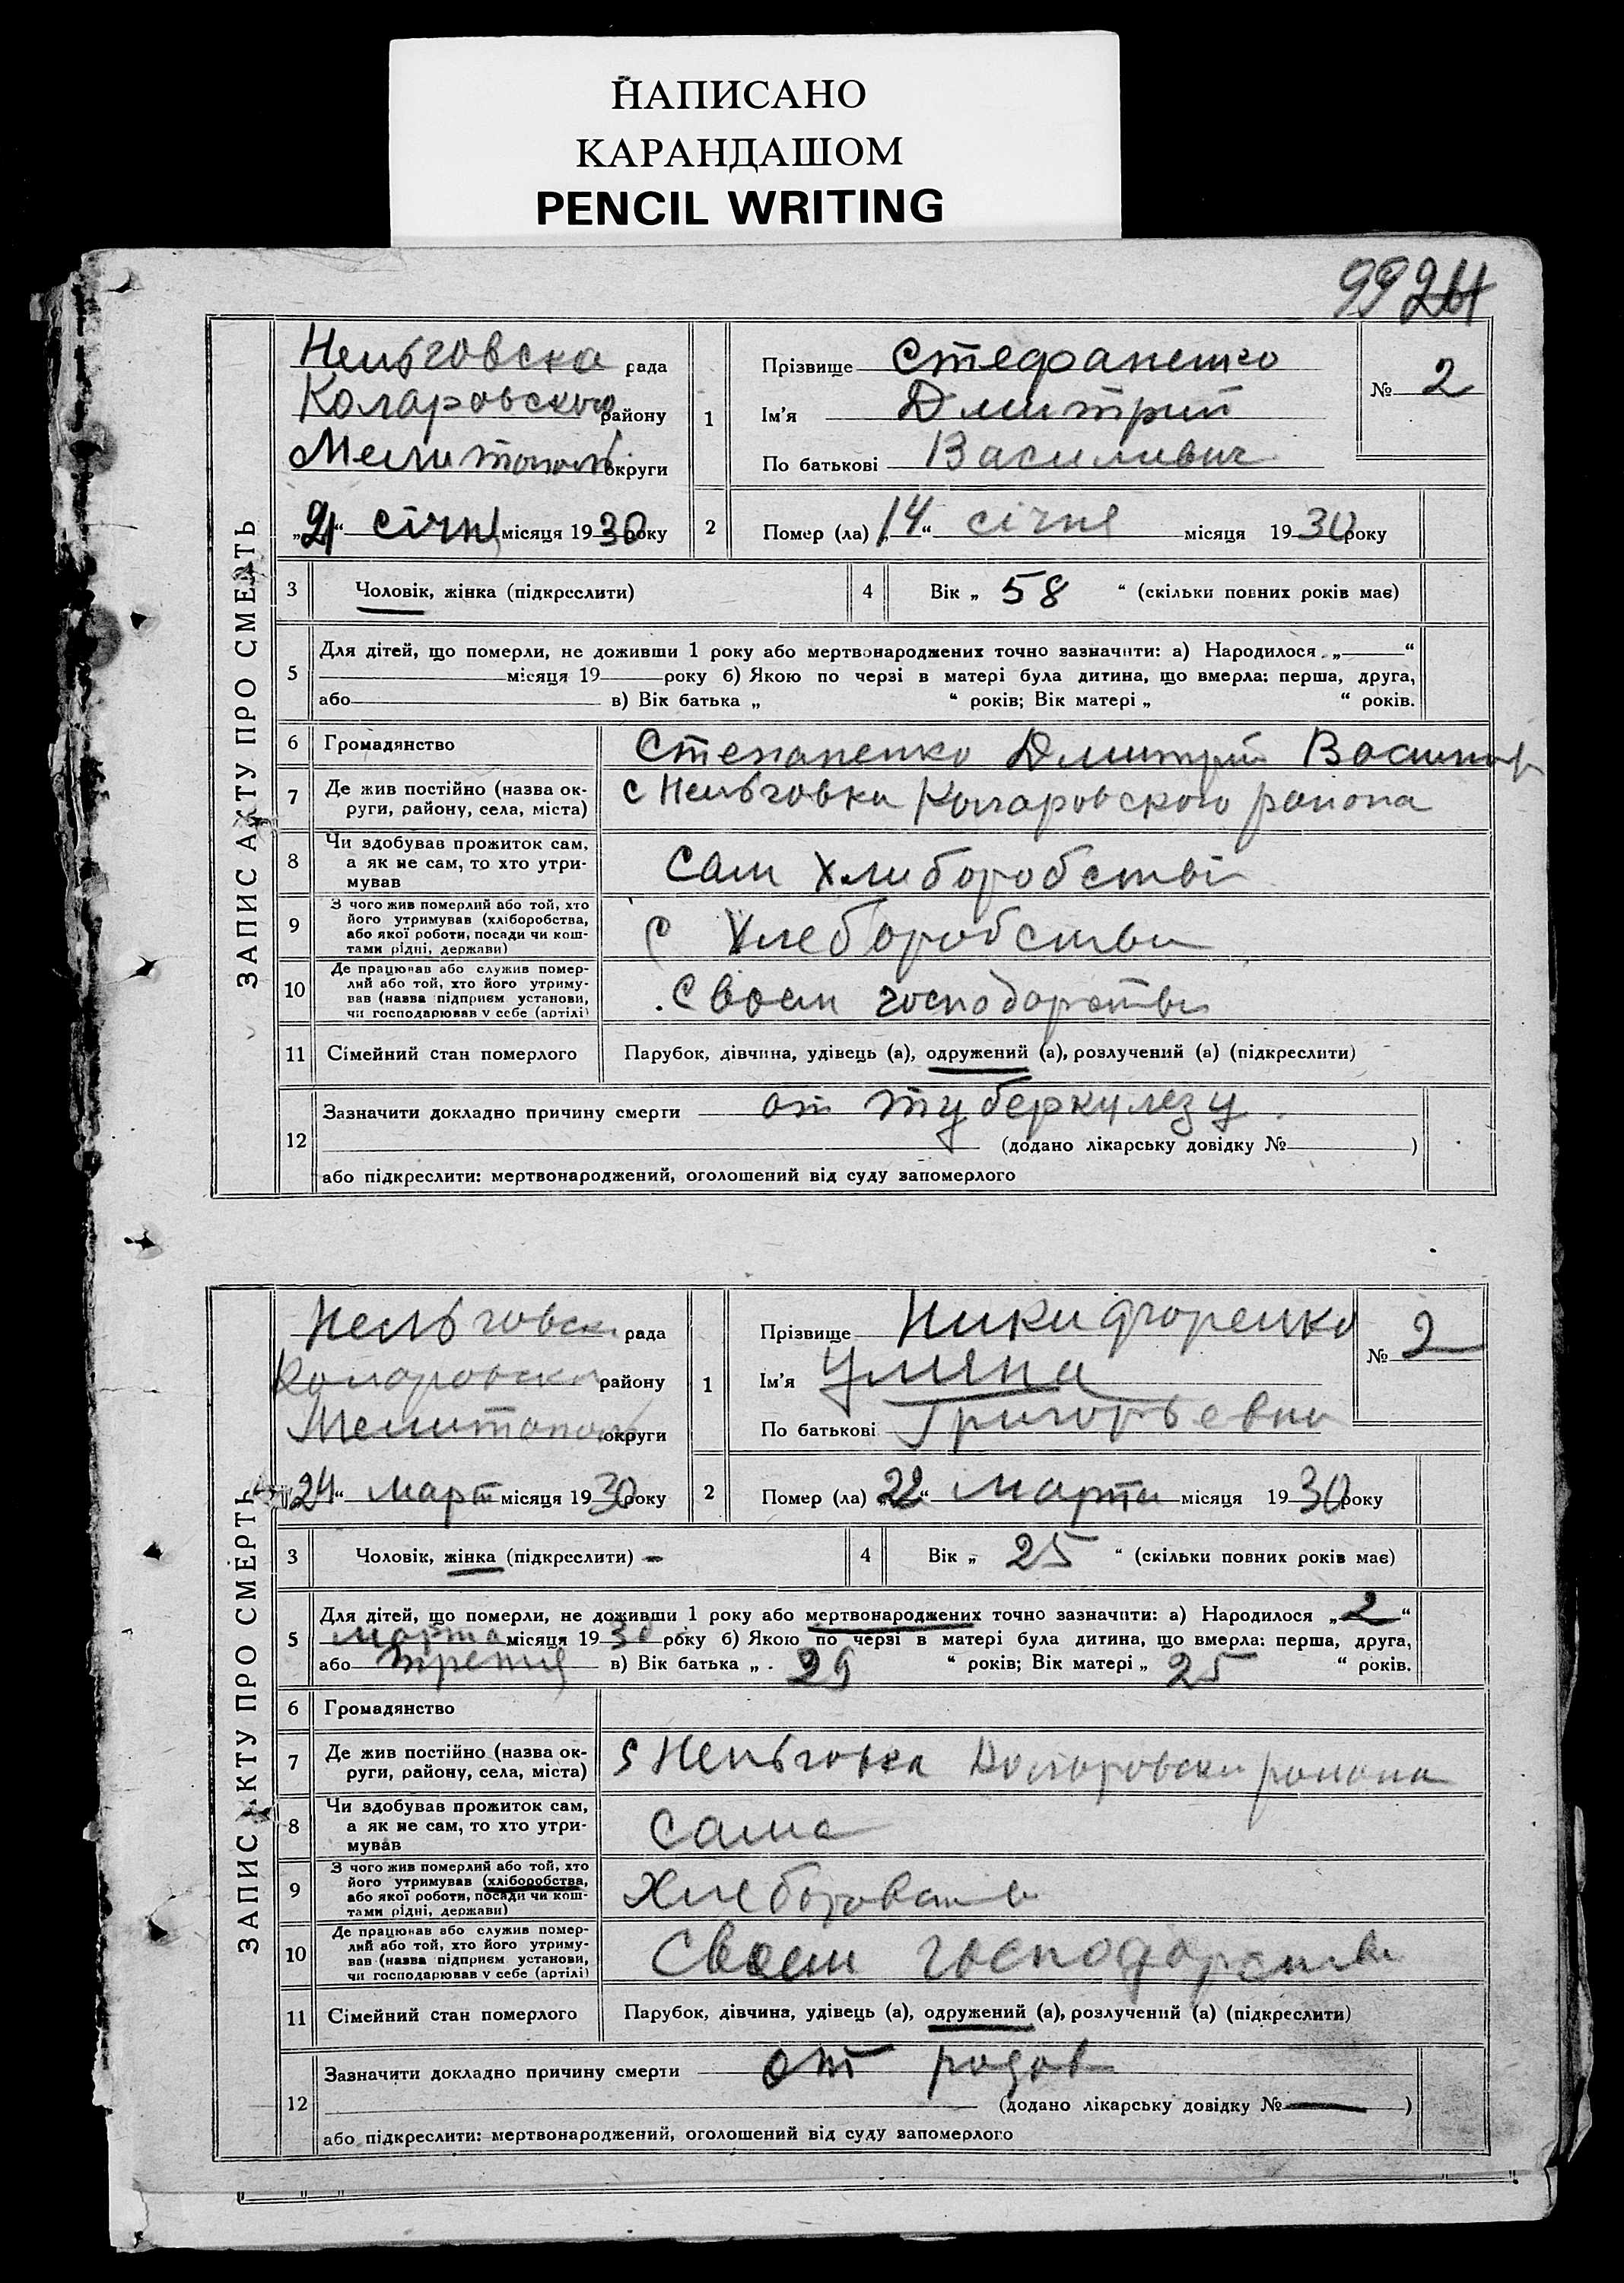 НАПИСАНО
КАРАНДАШОМ
PENCIL WRITING
99 21
ЗАПИС АКТУ ПРО СМЕРТЬ
Нельговска рада
Коларовского району
Мелитопол округи
„21“ січня місяця 1930 року
1 Прізвище Стефаненко
Ім’я Дмитрий
По батькові Василивич
№ 2
2 Помер (ла) „14“ січня місяця 1930 року
3 Чоловік, жінка (підкреслити)
4 Вік „ 58 “ (скільки повних років має)
5 Для дітей, що померли, не доживши 1 року або мертвонароджених точно зазначити: а) Народилося „ “
місяця 19 року б) Якою по черзі в матері була дитина, що вмерла: перша, друга,
або в) Вік батька „ “ років; Вік матері „ “ років.
6 Громадянство Степаненко Дмитрий
7 Де жив постійно (назва ок-
руги, району, села, міста) с Нельговка Коларовского района
8 Чи здобував прожиток сам,
а як не сам, то хто утри-
мував Сам хлиборобстві
9 З чого жив померлий або той, хто
його утримував (хліборобства,
або якої роботи, посади чи кош-
тами рідні, держави) С Хлеборобства
10 Де працював або служив помер-
лий або той, хто його утриму-
вав (назва підприєм. установи,
чи господарював у себе (артілі) Своем господарстви
11 Сімейний стан померлого Парубок, дівчина, удівець (а), одружений (а), розлучений (а) (підкреслити)
12 Зазначити докладно причину смерти от туберкулезу
(додано лікарську довідку № )
або підкреслити: мертвонароджений, оголошений від суду запомерлого
ЗАПИС АКТУ ПРО СМЕРТЬ
Нельговска рада
Коларовска району
Мелитопол округи
„24“ март місяця 1930 року
1 Прізвище Никифоренко
Ім’я Уляна
По батькові Григорьевна
№ 2
2 Помер (ла) „22“ марта місяця 1930 року
3 Чоловік, жінка (підкреслити)
4 Вік „ 25 “ (скільки повних років має)
5 Для дітей, що померли, не доживши 1 року або мертвонароджених точно зазначити: а) Народилося „2“
марта місяця 1930 року б) Якою по черзі в матері була дитина, що вмерла: перша, друга,
або третя в) Вік батька „ 29 “ років; Вік матері „ 25 “ років.
6 Громадянство
7 Де жив постійно (назва ок-
руги, району, села, міста) Нельговка Коларовски района
8 Чи здобував прожиток сам,
а як не сам, то хто утри-
мував Сама
9 З чого жив померлий або той, хто
його утримував (хліборобства,
або якої роботи, посади чи кош-
тами рідні, держави)
10 Де працював або служив помер-
лий або той, хто його утриму-
вав (назва підприєм. установи,
чи господарював у себе (артілі) Своем господарстви
11 Сімейний стан померлого Парубок, дівчина, удівець (а), одружений (а), розлучений (а) (підкреслити)
12 Зазначити докладно причину смерти от родов
(додано лікарську довідку № )
або підкреслити: мертвонароджений, оголошений від суду запомерлого